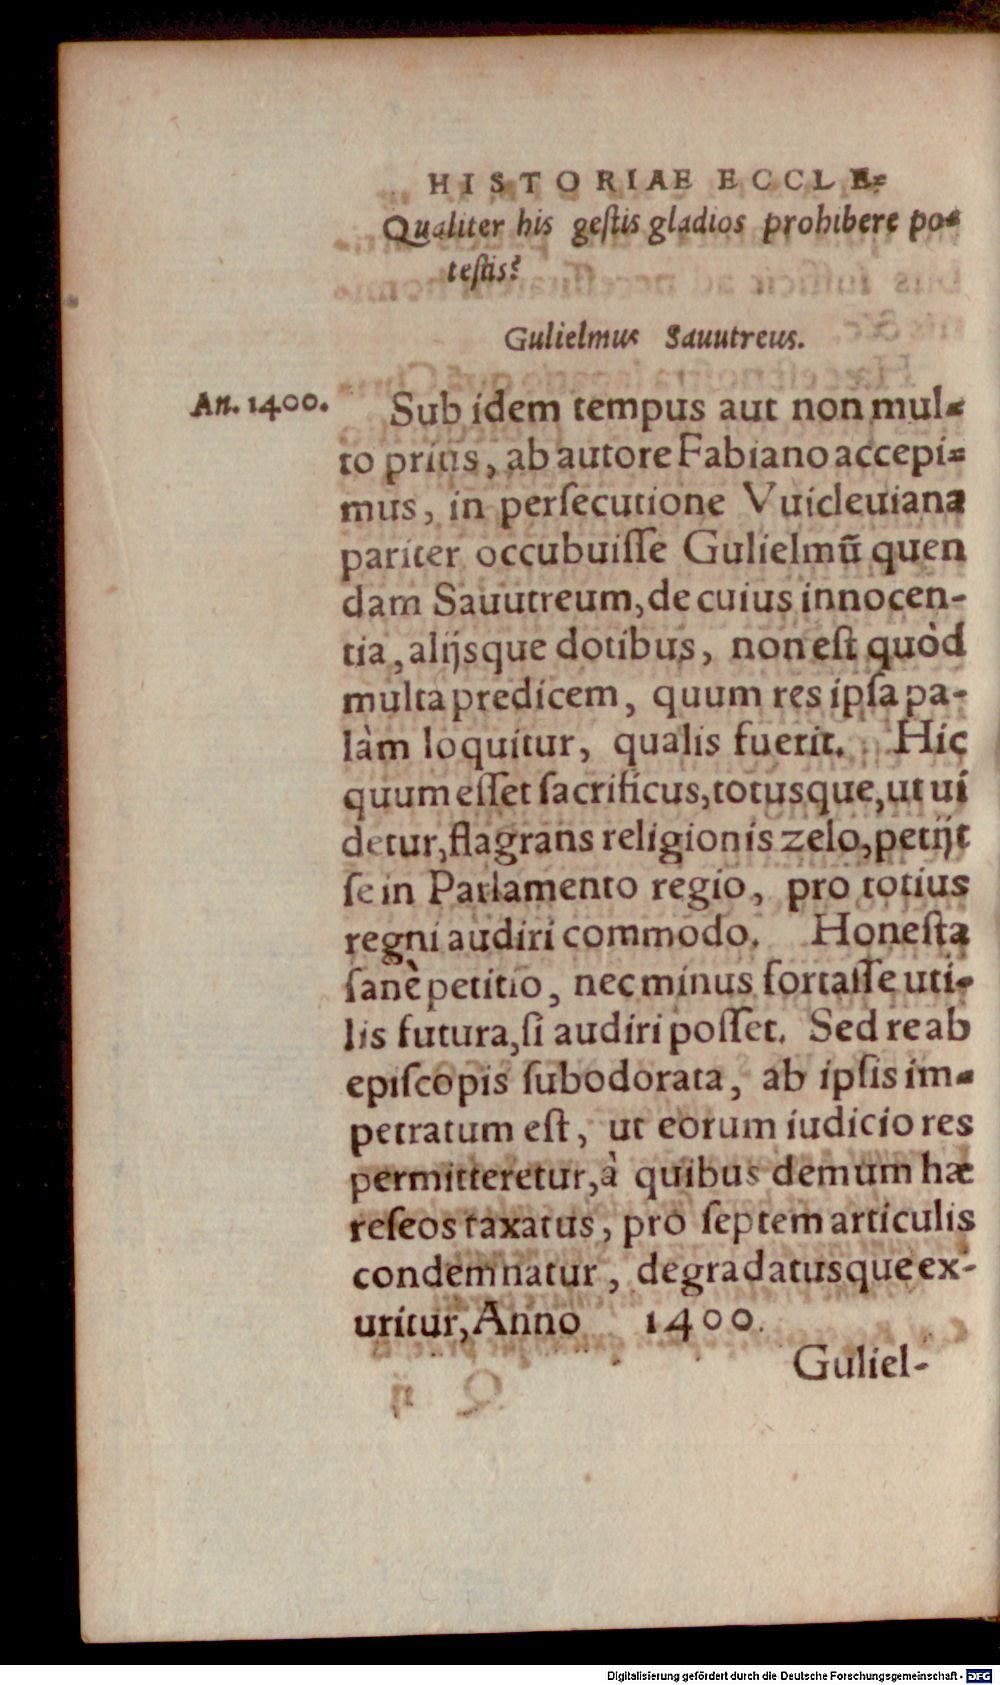 HISTORIAE ECCLE-
Qualiter his geſtis gladios prohibere po-
teſtis?
Gulielmus Sauutreus.
An. 1400.
Sub idem tempus aut non mul-
to prius, ab autore Fabiano accepi-
mus, in perſecutione Vuicleuiana
pariter occubuiſſe Gulielmũ quen
dam Sauutreum, de cuius innocen-
tia, alijsque dotibus, non eſt quòd
multa predicem, quum res ipſa pa-
làm loquitur, qualis fuerit. Hic
quum eſſet ſacrificus, totusque, ut ui
detur, flagrans religionis zelo, petijt
ſe in Parlamento regio, pro totius
regni audiri commodo. Honeſta
ſanè petitio, nec minus fortaſſe uti-
lis futura, ſi audiri poſſet. Sed re ab
epiſcopis ſubodorata, ab ipſis im-
petratum eſt, ut eorum iudicio res
permitteretur, à quibus demum hæ
reſeos taxatus, pro ſeptem articulis
condemnatur, degradatusque ex-
uritur, Anno 1400.
Guliel-
Digitalisierung gefördert durch die Deutsche Forschungsgemeinschaft - DFG